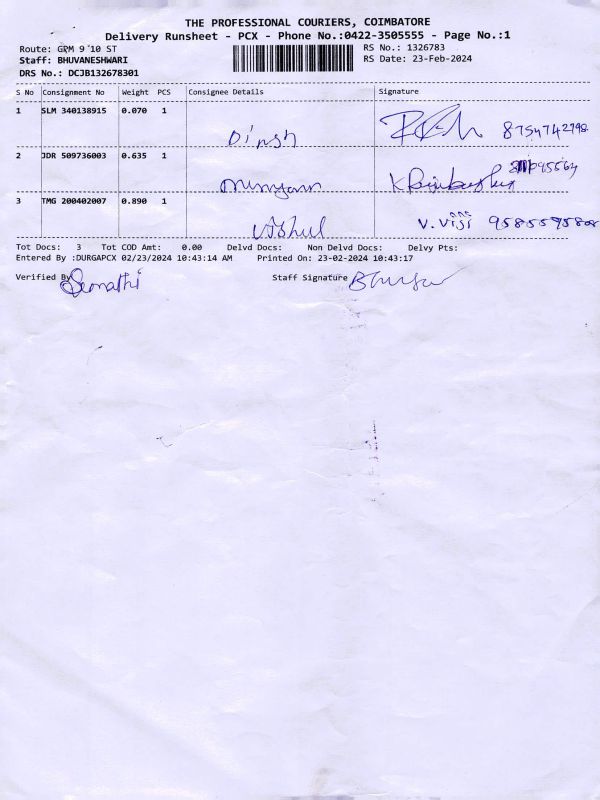 THE PROFESSIONAL COURIERS, COIMBATORE
Delivery Runsheet - PCX - Phone No.:0422-3505555 - Page No.:1
Route: GPM 9 10 ST RS No.: 1326783
Staff: BHUVANESHWARI RS Date: 23-Feb-2024
DRS No.: DCJB132678301
S No Consignment No Weight PCS Consignee Details Signature
1 SLM 340138915 0.070 1
Dinsh 8754742798
2 JDR 509736003 0.635 1
3 TMG 200402007 0.890 1
Vishul V. Viji
Tot Docs: 3 Tot COD Amt: 0.00 Delvd Docs: Non Delvd Docs: Delvy Pts:
Entered By :DURGAPCX 02/23/2024 10:43:14 AM Printed On: 23-02-2024 10:43:17
Verified By Staff Signature